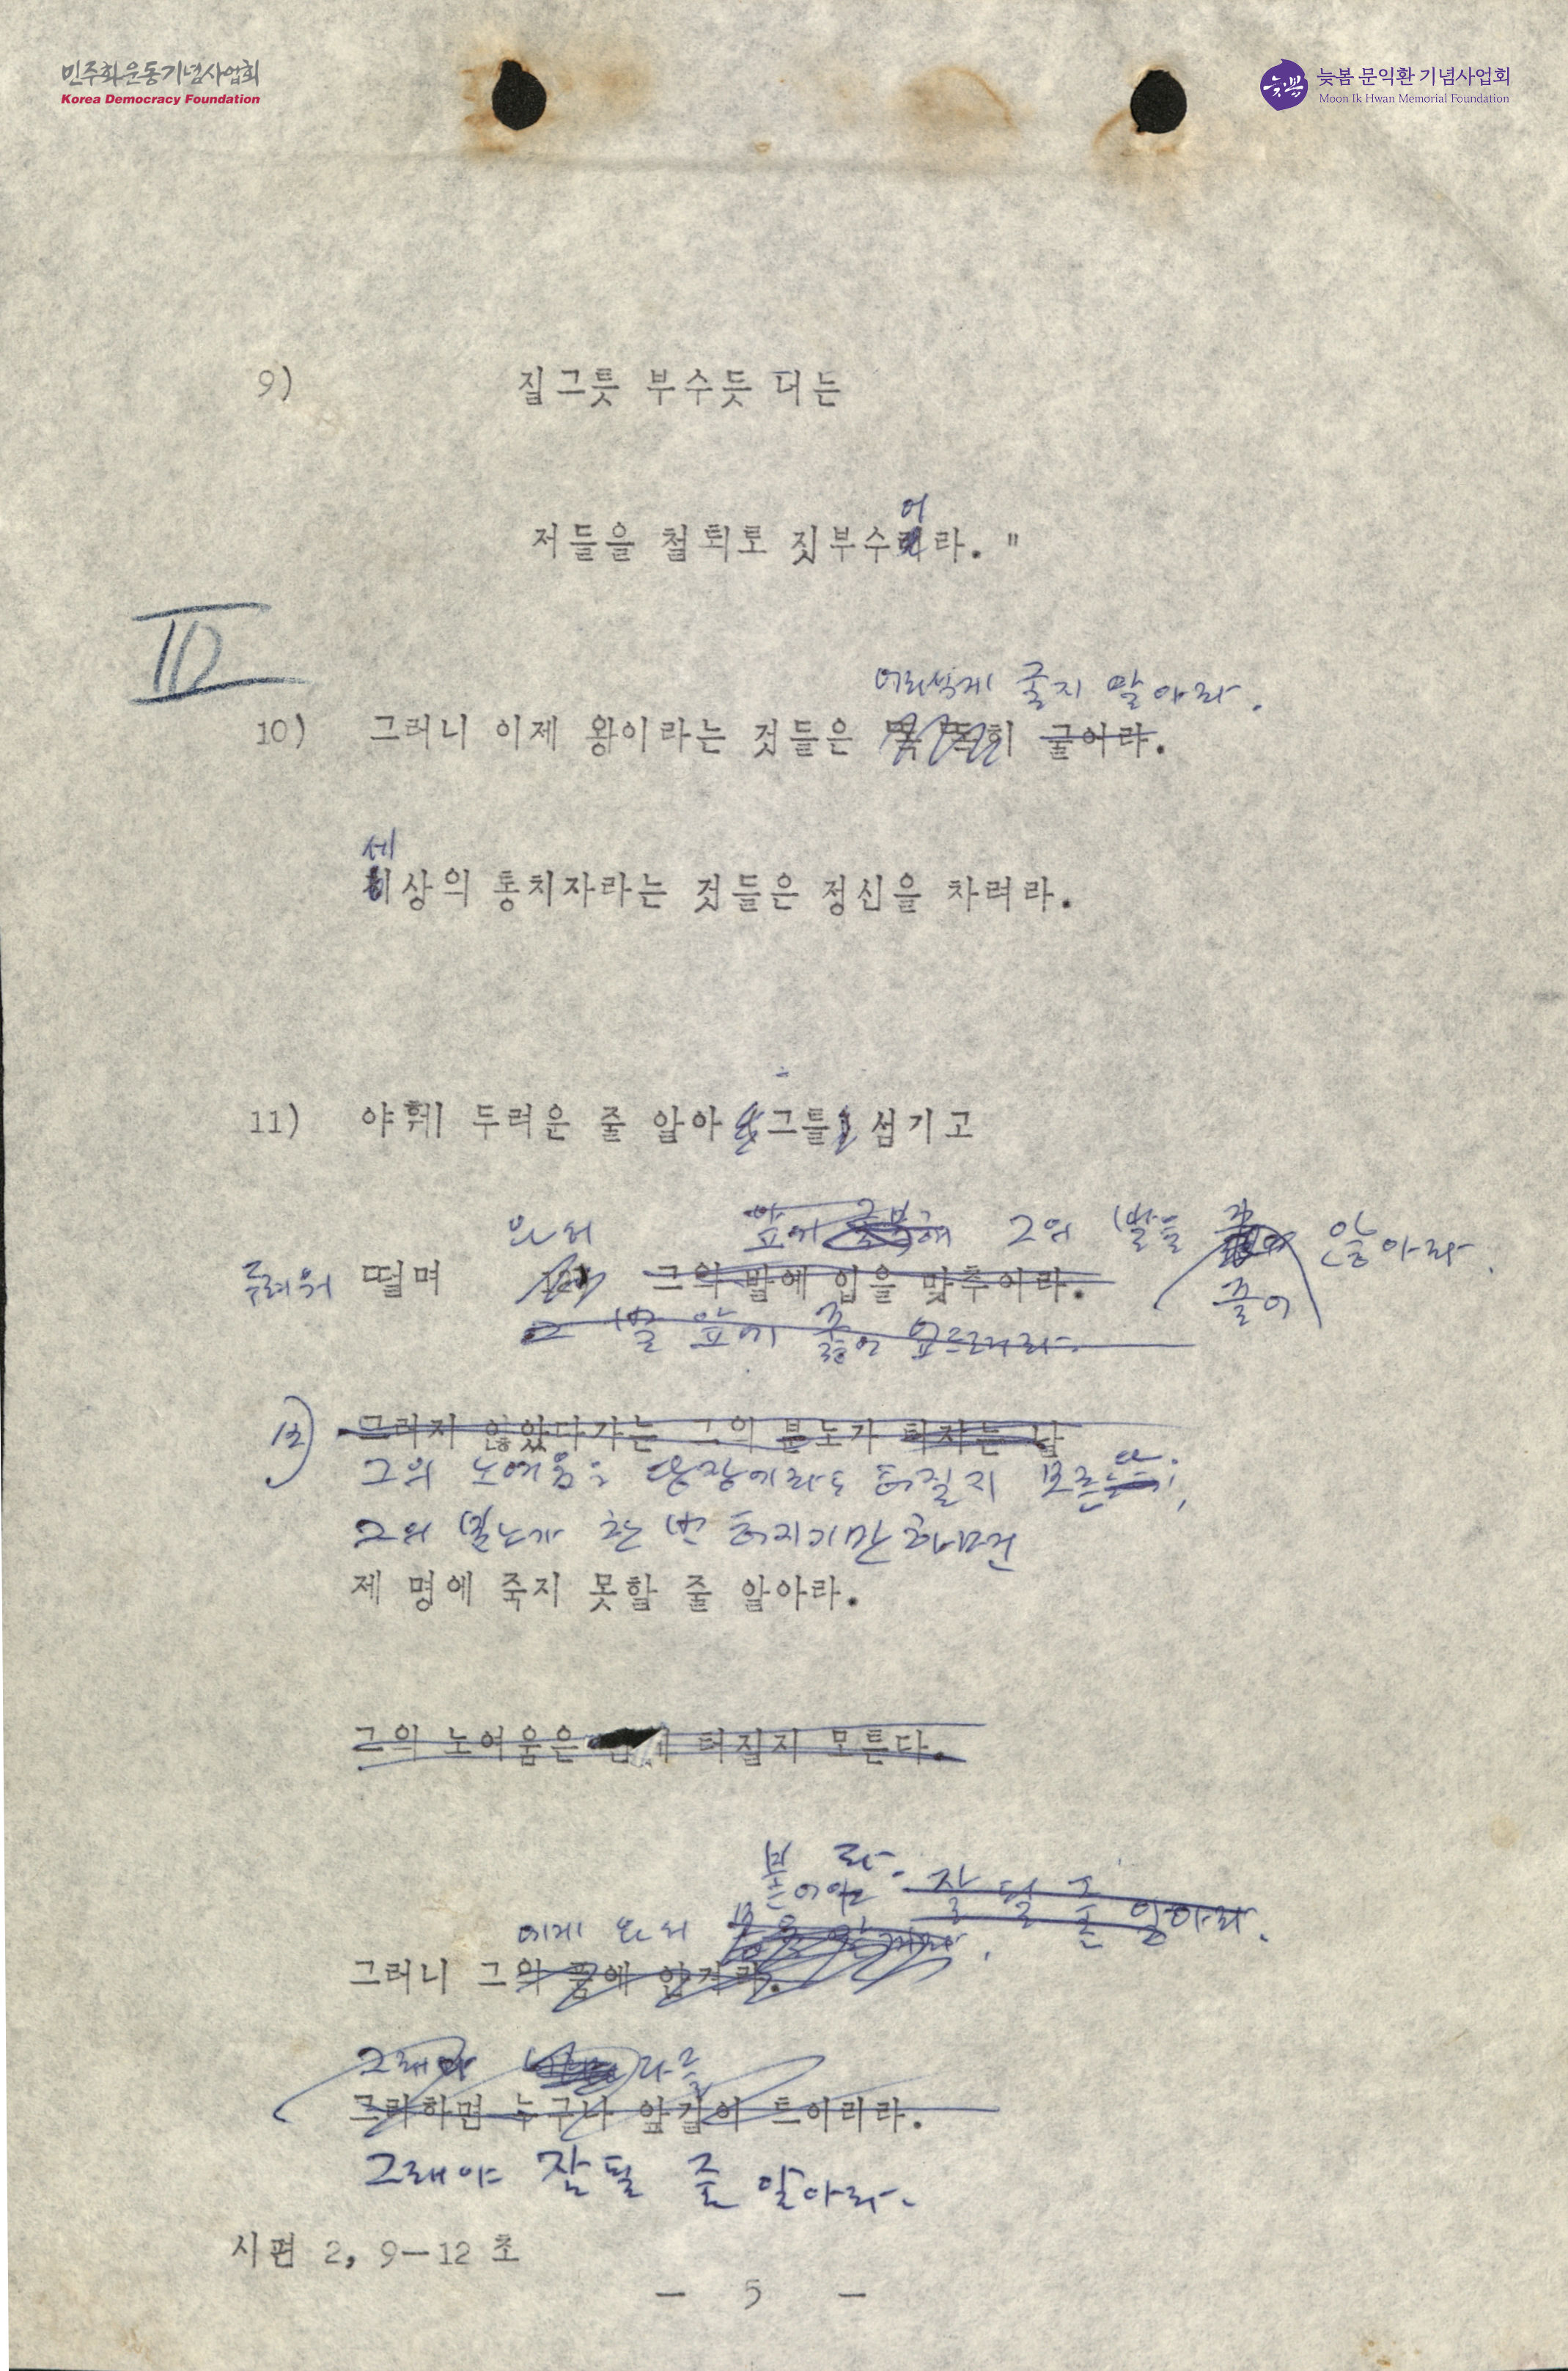 민주화운동기념사업회
Korea Democracy Foundation
늦봄
늦봄 문익환 기념사업회
Moon Ik Hwan Memorial Foundation
9) 질그릇 부수듯 너는
어
저들을 철퇴로 짓부수라. "
어리석게 굴지 말아라.
10) 그러니 이제 왕이라는 것들은 똑똑히 굴어라.
세
상의 통치자라는 것들은 정신을 차려라.
11) 야훼 두려운 줄 알아 그를 섬기고
와서 앞에 굴복해 그의 발을 않아라.
두려워 떨며 그의 발에 입을 맞추어라.
꿇어
그 발 앞에 꿇어 엎드려라.
12) 그러지 않았다가는 그의 분노가 터지는 날
그의 노여움은 당장에라도 터질지 모른다;
그의 분노가 한 번 터지기만 하면
제 명에 죽지 못할 줄 알아라.
그의 노여움은 터질지 모른다.
라. 잘 될 줄 알아라.
에게 와서
그러니 그의 품에 안겨라.
그래야
그리하면 누구나 앞길이 트이리라.
그래야 잘될 줄 알아라.
시편 2, 9—12 초
— 5 —